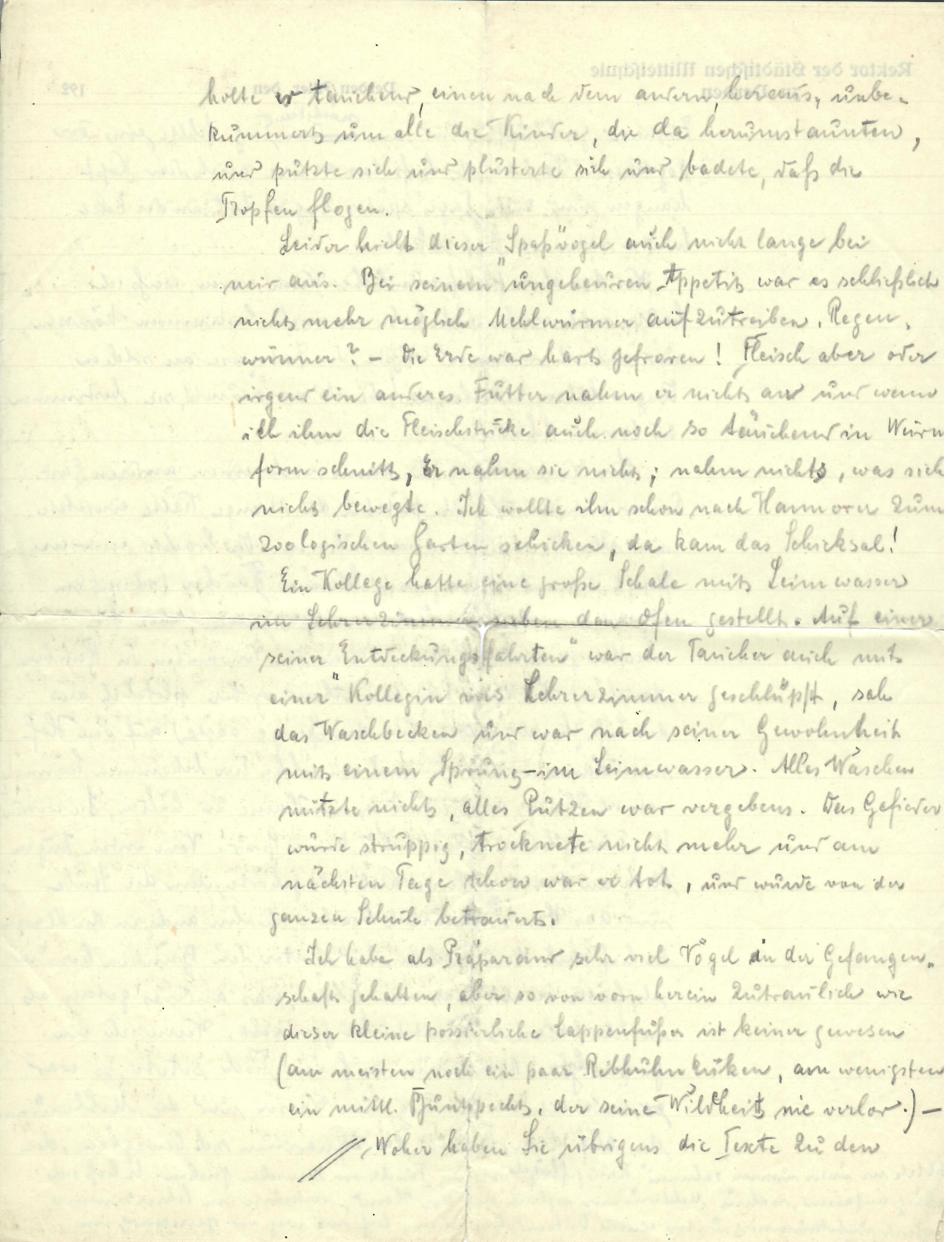 holte er tauchend, einen nach dem andern, heraus, unbe-
kümmert um alle die Kinder, die da herumstaunten,
und putzte sich und plusterte sich und badete, daß die
Tropfen flogen.
Leider hielt dieser „Spaßvogel“ auch nicht lange bei
mir aus. Bei seinem ungeheuren Appetit war es schließlich
nicht mehr möglich Mehlwürmer aufzutreiben. Regen-
würmer? – Die Erde war hart gefroren! Fleisch aber oder
irgend ein anderes Futter nahm er nicht an und wenn
ich ihm die Fleischstücke auch noch so täuschend in Wurm
form schnitt, Er nahm sie nicht; nahm nichts, was sich
nicht bewegte. Ich wollte ihn schon nach Hannover zum
zoologischen Garten schicken, da kam das Schicksal!
Ein Kollege hatte eine große Schale mit Leimwasser
im Lehrerzimmer neben den Ofen gestellt. Auf einer
seiner „Entdeckungsfahrten“ war der Taucher auch mit
einer Kollegin ins Lehrerzimmer geschlüpft, sah
das Waschbecken und war nach seiner Gewohnheit
mit einem Sprung – im Leimwasser. Alles Waschen
nützte nichts, alles Putzen war vergebens. Das Gefieder
wurde struppig, trocknete nicht mehr und am
nächsten Tage schon war er tot, und wurde von der
ganzen Schule betrauert.
Ich habe als Präparand sehr viel Vögel in der Gefangen-
schaft gehalten, aber so von vorn herein zutraulich wie
dieser kleine possierliche Lappenfußer ist keiner gewesen
(am meisten noch ein paar Rebhuhnküken, am wenigsten
ein mittl. Buntspecht, der seine Wildheit nie verlor.) –
// Woher haben Sie übrigens die Texte zu den